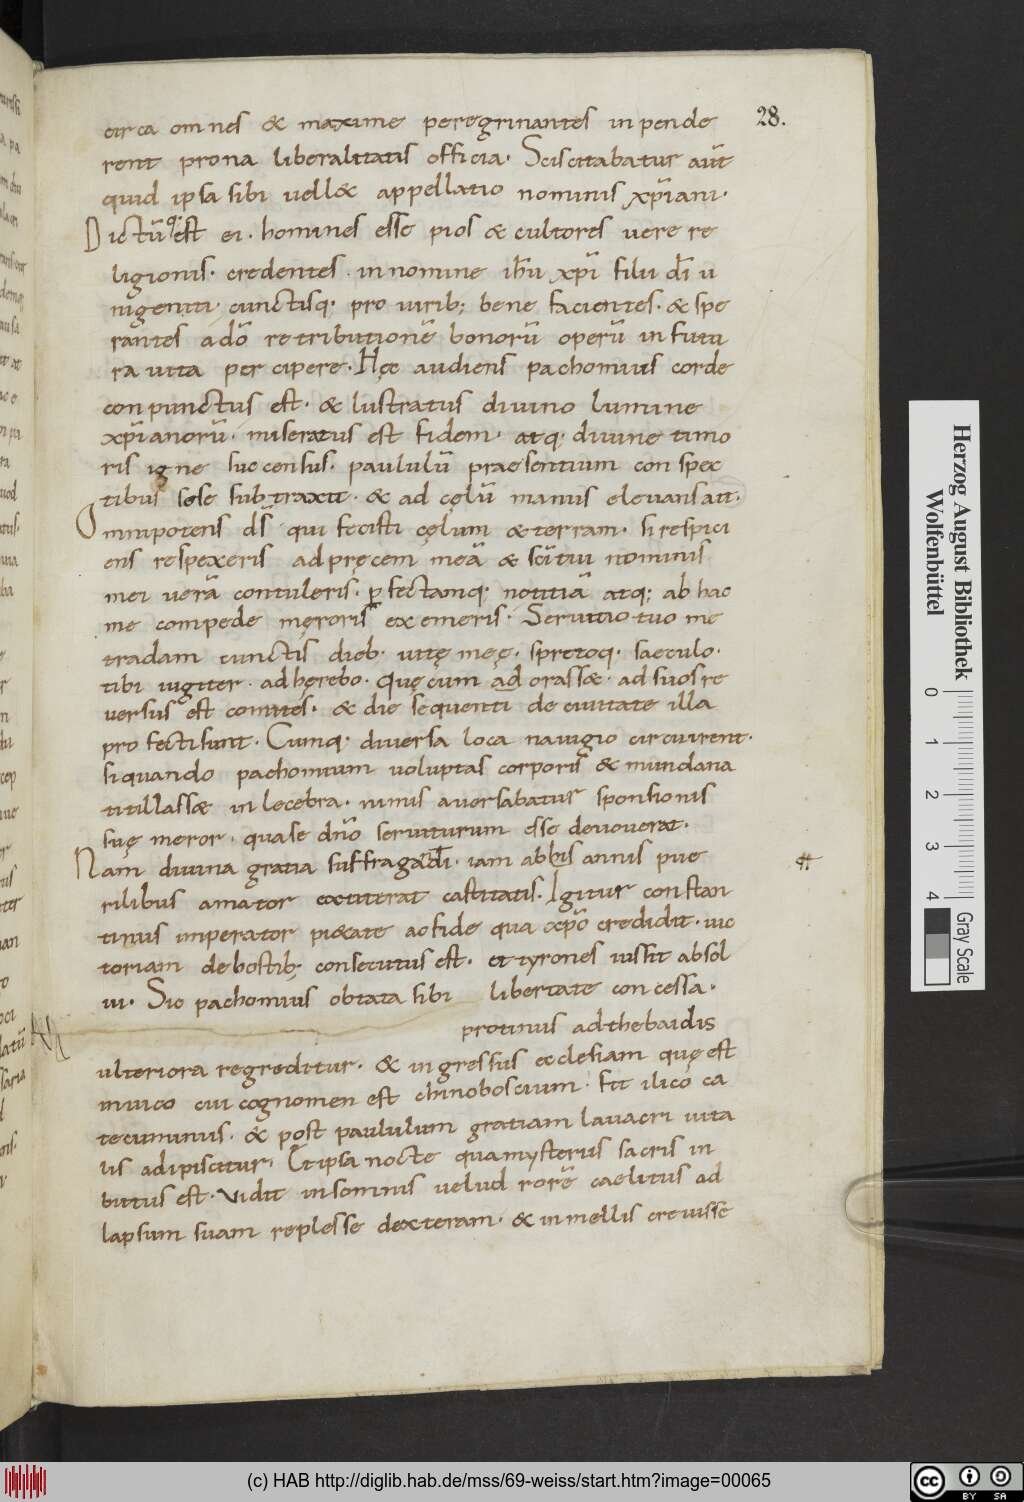 28.
circa omnes & maxime peregrinantes inpende
rent prona liberalitatis officia. Sciscitabatur aut̄
quid ipsa sibi uell& appellatio nominis xp̄iani.
Dictū q; est ei. homines esse pios & cultores uere re
ligionis. credentes. innomine ih̄u xp̄i filii dī u
nigeniti. cunctisq; pro uirib; bene facientes. & spe
rantes adō retributionē bonorū operū infutu
ra uita percipere. Hęc audiens pachomius corde
conpunctus est. & lustratus diuino lumine
xp̄ianorū. miseratus est fidem. atq; diuine timo
ris igne succensus. paululū praesentium conspec
tibus sese subtraxit. & ad cęlū manus eleuans ait.
Omnipotens ds̄ qui fecisti cęlum & terram. si respici
ens respexeris ad pręcem meā & sc̄i tui nominis
mei uerā contuleris. ꝑfectamq; notitiā atq; ab hac
me compede męroris exemeris. Seruitio tuo me
tradam cunctis dieb. uitę meę. spretoq. saeculo.
tibi iugiter. adhęrebo. Quę cum adorass&. ad suos re
uersus est comites. & die sequenti de ciuitate illa
profecti sunt. Cumq. diuersa loca nauigio circuirent.
siquando pachomium uoluptas corporis & mundana
titillass& inlecebra. nimis auersabatur sponsionis
suę memor. qua se dn̄o seruiturum esse deuouerat.
Nam diuina gratia suffragādī. iam abhis annis pue
rilibus amator extiterat castitatis. Igitur constan
tinus imperator pi&ate ac fide qua xp̄o credidit. uic
toriam de hostib; consecutus est. et tyrones iussit absol
ui. Sic pachomius obtata sibi libertate concessa.
protinus ad thebaidis
ulteriora regreditur. & ingressus ecclesiam quę est
inuico cui cognomen est chinoboscium. fit ilico ca
tecuminus. & post paululum gratiam lauacri uita
lis adipiscitur. Et ipsa nocte qua mysteriis sacris in
butus est. vidit insomnis uelud rorē caelitus ad
lapsum suam replesse dexteram. & in mellis creuisse
Herzog August Bibliothek
Wolfenbüttel
0 1 2 3 4
Gray Scale
(c) HAB http://diglib.hab.de/mss/69-weiss/start.htm?image=00065
cc BY SA